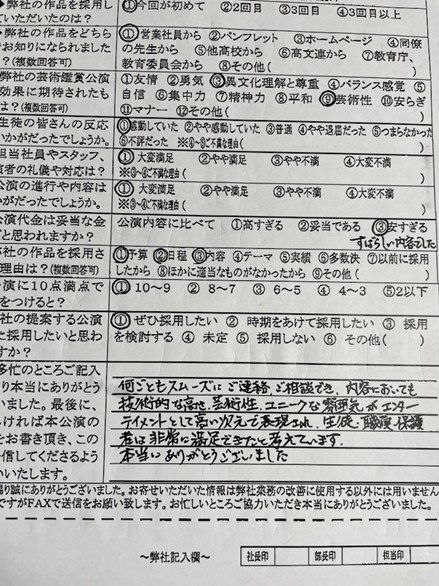 弊社の作品を採用し ①今回が初めて ②2回目 ③3回目 ④3回目以上
ていただいたのは?
弊社の作品をどちら ①営業社員から ②パンフレット ③ホームページ ④同僚
お知りになられました の先生から ⑤他高校から ⑥高文連から ⑦教育庁、
?(複数回答可) 教育委員会から ⑧その他( )
弊社の芸術鑑賞公演 ①友情 ②勇気 ③異文化理解と尊重 ④バランス感覚 ⑤
効果に期待されたも 自信 ⑥集中力 ⑦精神力 ⑧平和 ⑨芸術性 ⑩安らぎ
は?(複数回答可) ⑪マナー ⑫その他( )
生徒の皆さんの反応 ①感動していた ②やや感動していた ③普通 ④やや退屈だった ⑤つまらなかった
いかがだったでしょうか。 ⑥不評だった ※④~⑥ご不満な理由( )
担当社員やスタッフ、 ①大変満足 ②やや満足 ③やや不満 ④大変不満
者の礼儀や対応は? ※③~④ご不満な理由( )
公演の進行や内容は ①大変満足 ②やや満足 ③やや不満 ④大変不満
がだったでしょうか。 ※③~④ご不満な理由( )
公演代金は妥当な金 公演内容に比べて ①高すぎる ②妥当である ③安すぎる
と思われますか? すばらしい内容でした
弊社の作品を採用さ ①予算 ②日程 ③内容 ④テーマ ⑤実績 ⑥多数決 ⑦以前に採用
理由は?(複数回答可) したから ⑧ほかに適当なものがなかったから ⑨その他( )
演に10点満点で ① 10~9 ② 8~7 ③ 6~5 ④ 4~3 ⑤2以下
をつけると?
社の提案する公演 ① ぜひ採用したい ② 時期をあけて採用したい ③ 採用
採用したいと思わ を検討する ④ 未定 ⑤ 採用しない ⑥ その他( )
すか?
多忙のところご記入
り本当にありがとう 何ごともスムーズにご連絡、ご相談でき、内容においても
いました。最後に、 技術的な高さ、芸術性、ユニークな雰囲気がエンター
ければ本公演の テイメントとして高い次元で表現され、生徒・職員・保護
をお書き頂き、この 者は非常に満足できたと考えています。
信してくださるよう 本当にありがとうございました
いいたします。
誠にありがとうございました。お寄せいただいた情報は弊社業務の改善に使用する以外には用いません
ですがFAXで送信をお願い致します。お忙しいところご協力いただき本当にありがとうございました。
~弊社記入欄~ 社長印 部長印 担当印